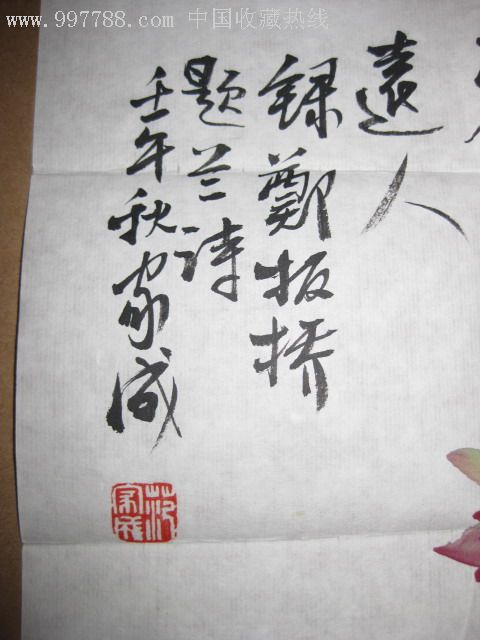 www.997788.com 中国收藏热线
遠人
録鄭板桥
题兰诗
壬午秋家成
范家成